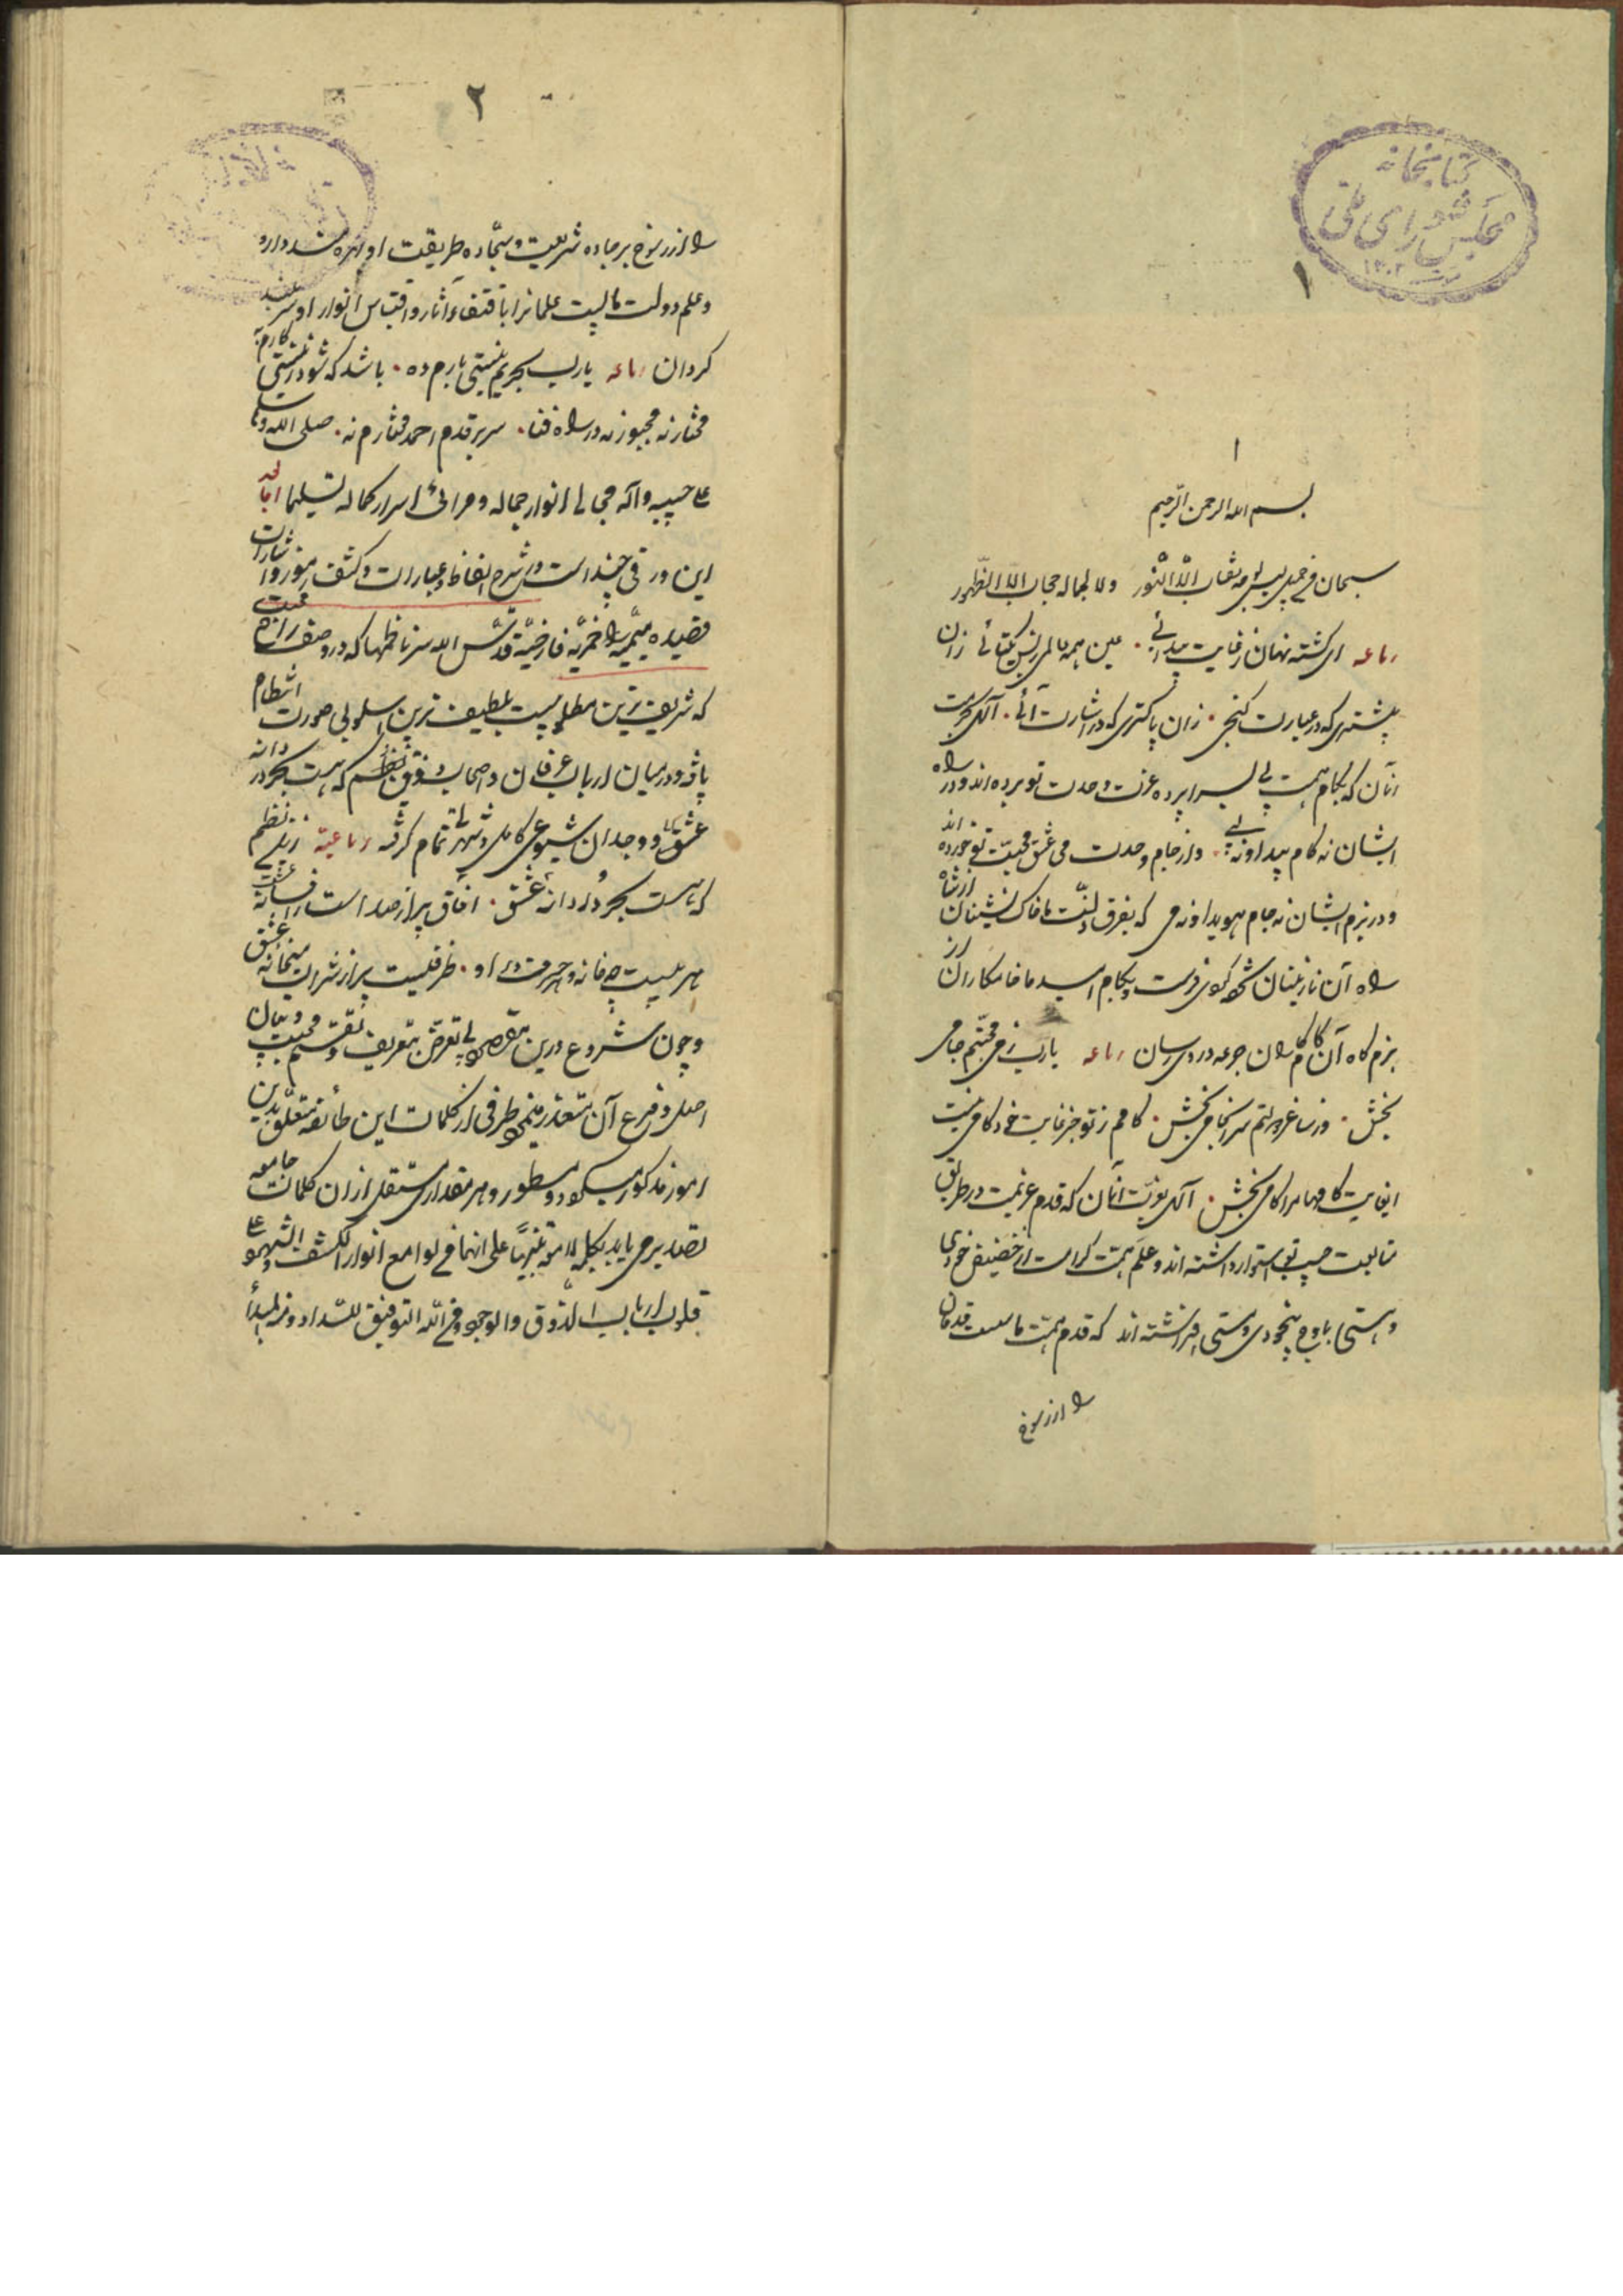 کتابخانه
مجلس شورای ملی
۱۳۰۲
۱
۱
بسم الله الرحمن الرحیم
سبحان من جمیل لیس لوجهه نقاب الا النور ولا لجماله حجاب الا الظهور
رباعیه ای گشته نهان ز غایت پیدائی . عین همه عالمی ز بس یکتائی زان
بیشتری که در عبارت گنجی . زان پاکتری که در اشارت آئی . الهی بحرمت
آنان که بگام همت پی بسراپرده عزت وحدت تو برده اند و در راه
ایشان نه گام پیدا و نه پی . و از جام وحدت می عشق و محبت تو خورده اند
و در بزم ایشان نه جام هویدا و نه می که بفرق دولت ما خاک نشینان از شاه
راه آن نازنینان گردی فرست و بکام امید ما خامکاران از
بزم گاه آن کامگاران جرعه دردی رسان رباعه یارب ز می محبتم جامی
بخش . وز ساغر دولتم سرانجامی بخش . کامم ز تو جز غایت خودکامی نیست
ای غایت کامها مرا کامی بخش . الهی بعزت آنان که قدم عزیمت در طریق
متابعت حبیب تو استوار داشته اند و علم همت کرامت از حضیض خودی
و هستی باوج بیخودی و مستی افراشته اند که قدم همت ما سست قدمان
را از رسوخ
۲
را از رسوخ بر جاده شریعت و سجاده طریقت او بهره مند دار
و علم دولت ما پست علمانرا باقتفاء آثار و اقتباس انوار او سربلند
گردان رباعه یارب بحریم نیستی بارم ده . باشد که شود ز نیستی کارم به
مختار نه مجبور نه در راه فنا . سر بر قدم احمد مختارم نه . صلی الله وسلم
علی حبیبه وآله مجالی انوار جماله و مرائی اسرار کماله تسلیما اما بعد
این ورقی چند است در شرح الفاظ و عبارات و کشف رموز و اشارات
قصیده میمیه خمریه فارضیه قدس الله سر ناظمها که در وصف راح محبت
که شریف ترین مطلوبیست بلطیف ترین اسلوبی صورت انتظام
یافته و در میان ارباب عرفان و اصحاب ذوق نظم که هست بحر دردانه
عشق و وجدان شیوعی کامل و شهرتی تمام گرفته رباعیه زیبی نظم
که هست بحر دردانه عشق . آفاق پر از صداست ز افسانه عشق
هر بیت چو خانه و حروفی در او . ظرفیست پر از شراب میخانه عشق
و چون شروع درین مقصود بی تعرض بتعریف و تقسیم محبت و بیان
اصل و فرع آن متعذر مینمود طرفی از کلمات این طائفه متعلق بدین
امور مذکور میشود و مسطور و هر مقداری مستقل از ان کلمات جامعه
تصدیر می یابد بکلمه لامعه تنبیها علی انها من لوامع انوار الکشف والشهود علی
قلوب ارباب الذوق والوجود ومن الله التوفیق للسداد ومنه المبدأ